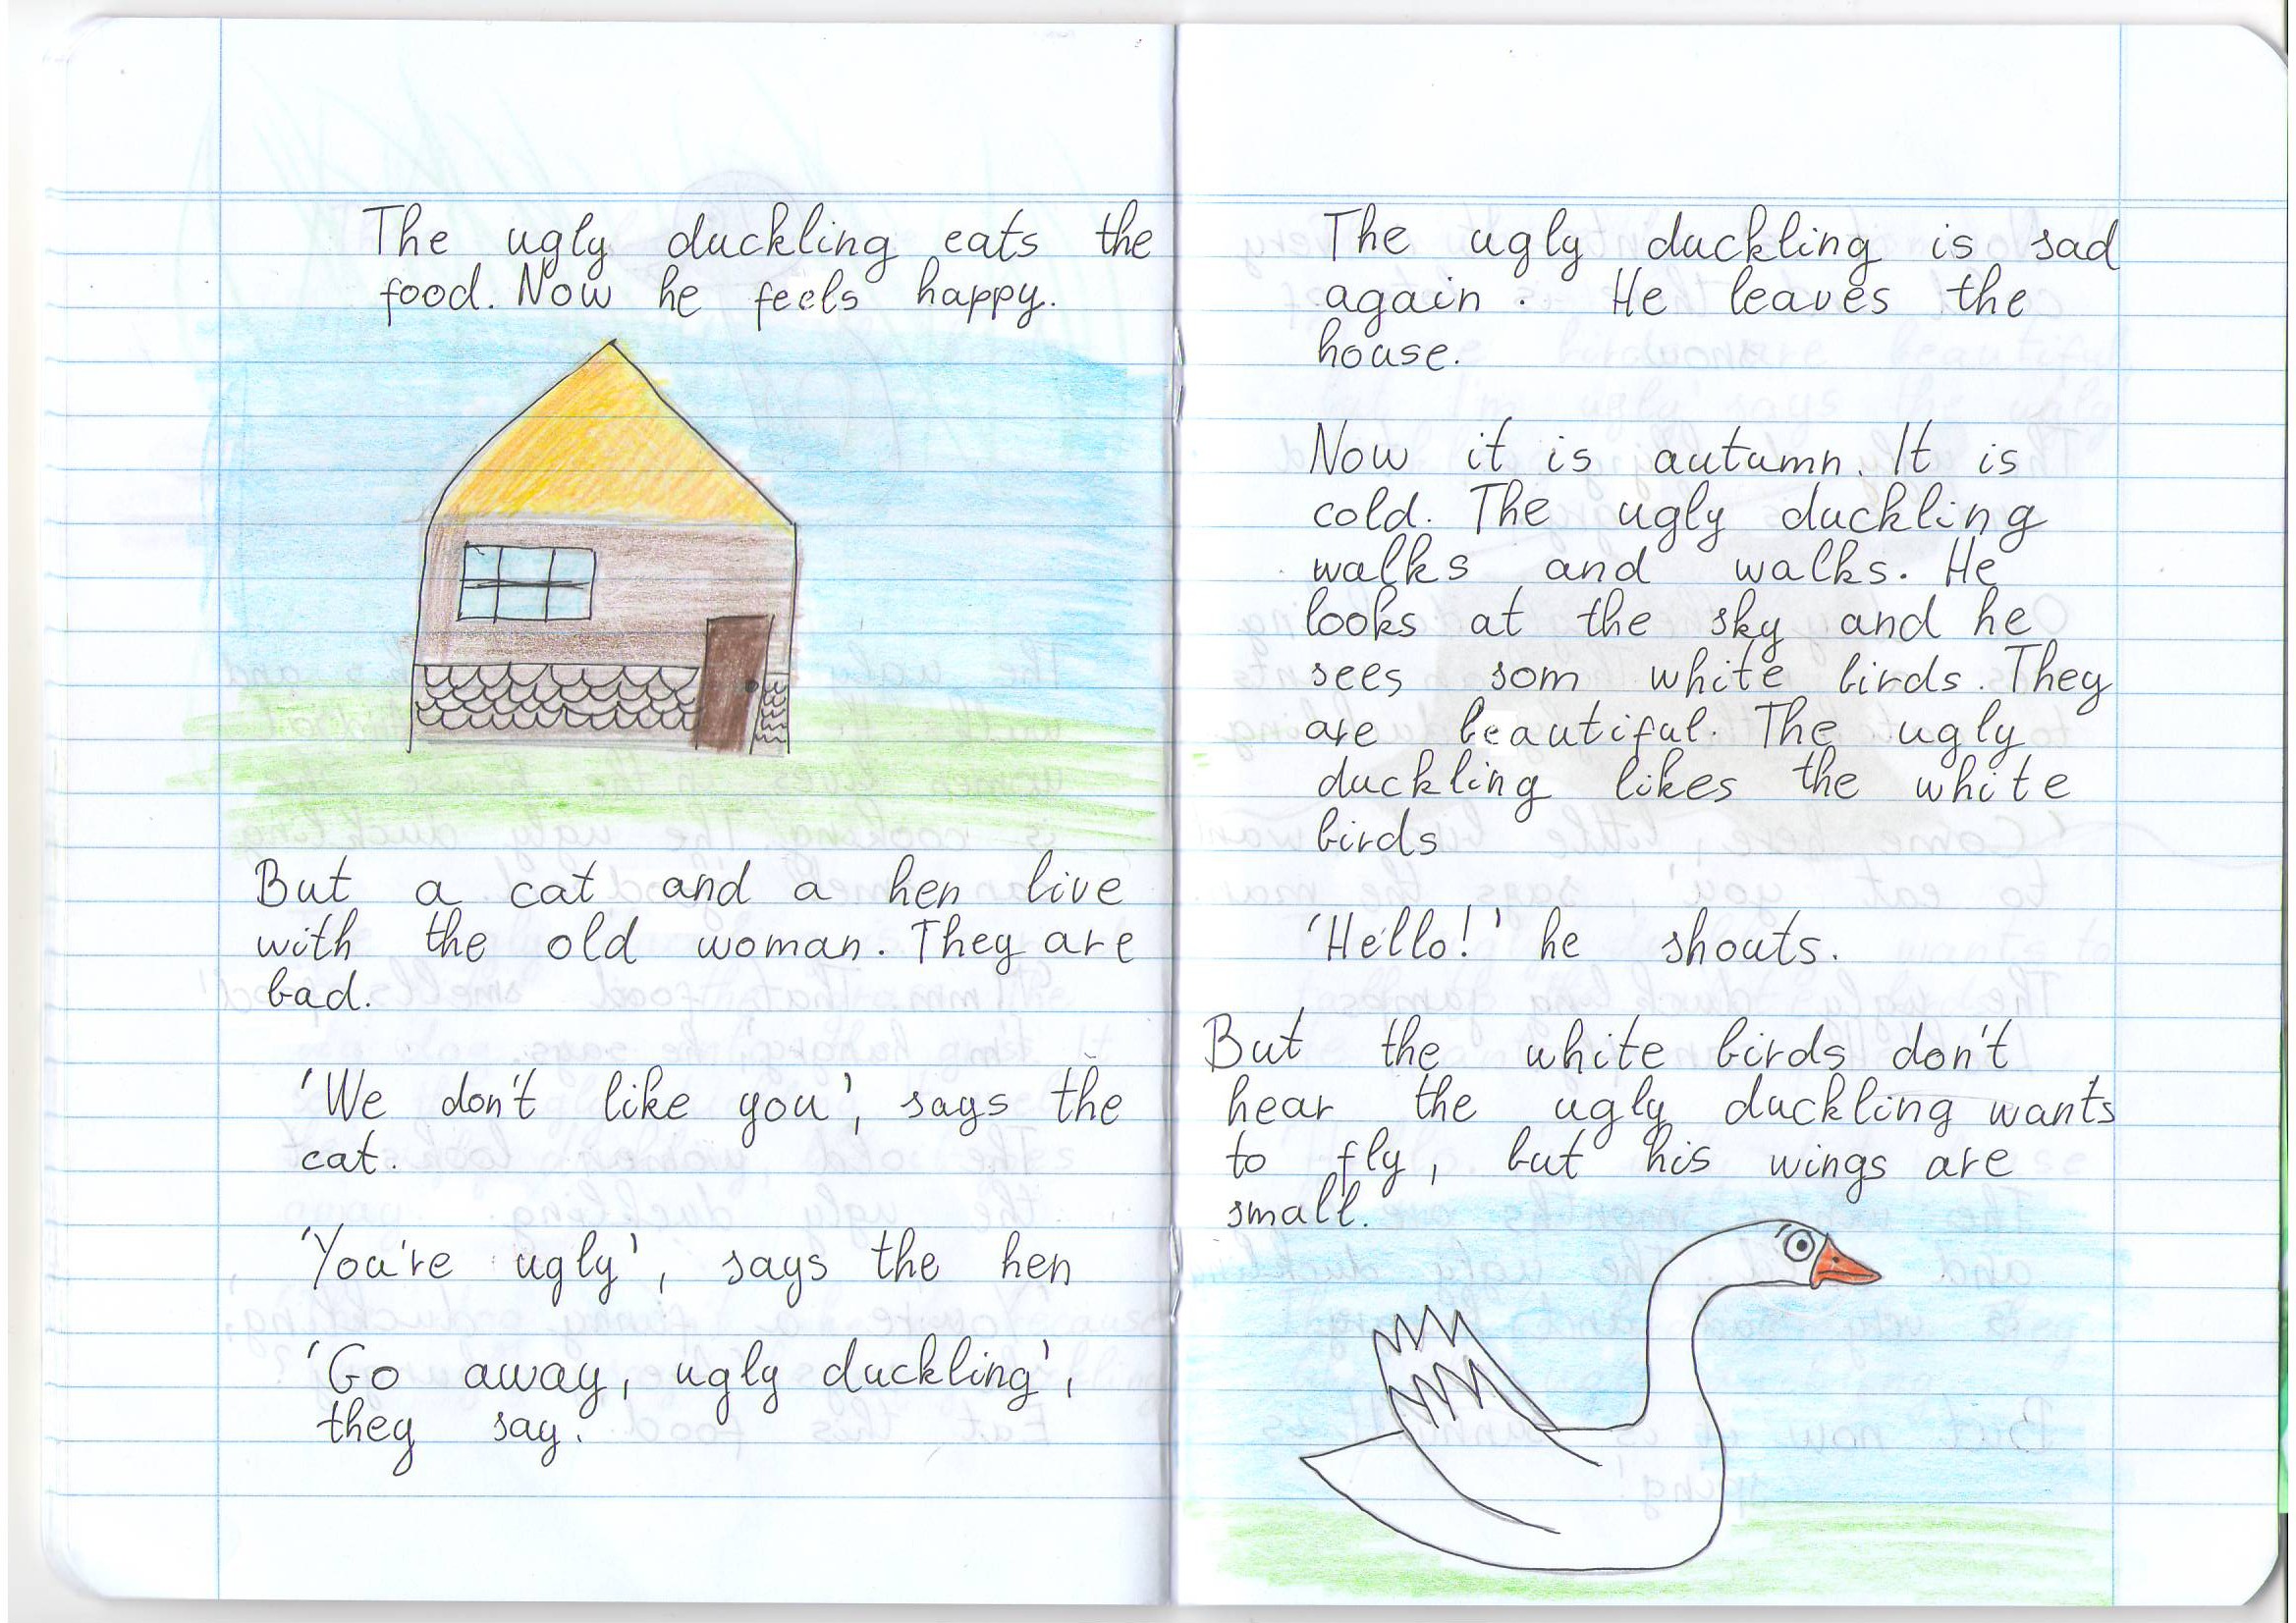 The ugly duckling eats the
food. Now he feels happy.
But a cat and a hen live
with the old woman. They are
bad.
'We don't like you', says the
cat.
'You're ugly', says the hen
'Go away, ugly duckling',
they say.
The ugly duckling is sad
again. He leaves the
house.
Now it is autumn. It is
cold. The ugly duckling
walks and walks. He
looks at the sky and he
sees som white birds. They
are beautiful. The ugly
duckling likes the white
birds
'Hello!' he shouts.
But the white birds don't
hear the ugly duckling wants
to fly, but his wings are
small.